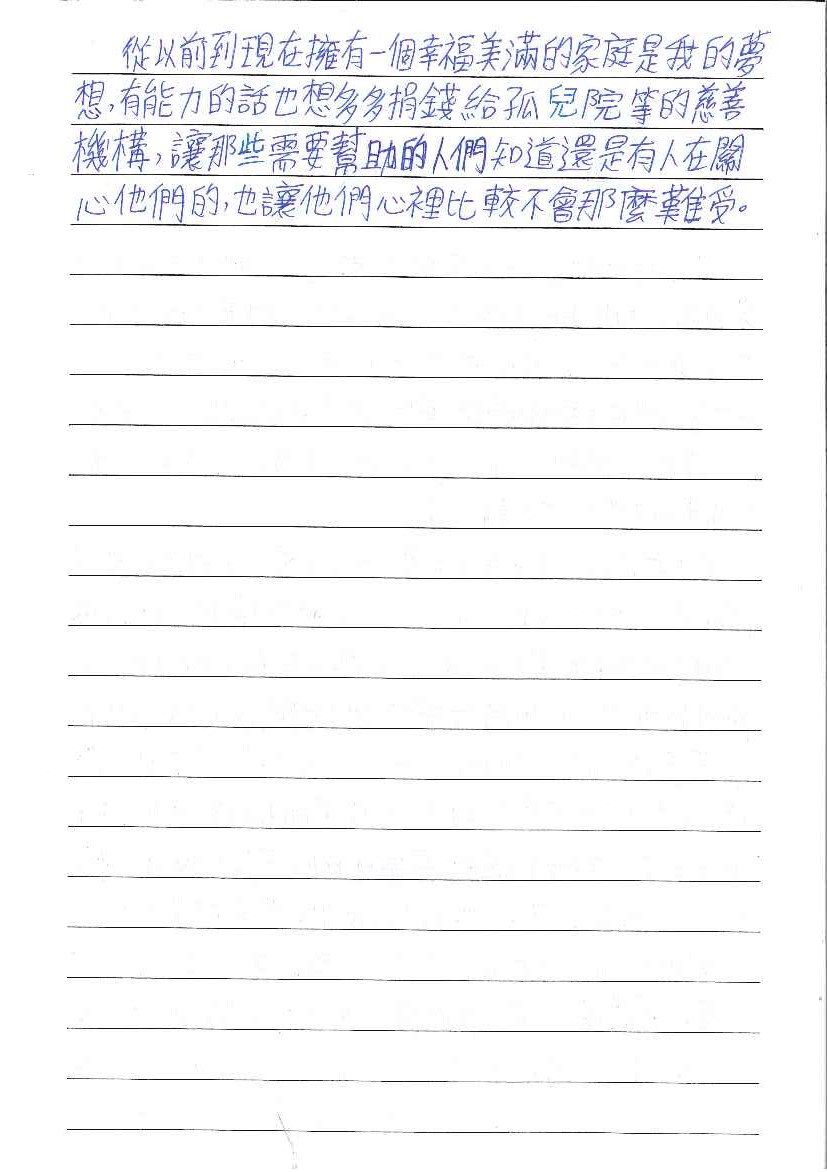 從以前到現在擁有一個幸福美滿的家庭是我的夢
想,有能力的話也想多多捐錢給孤兒院等的慈善
機構,讓那些需要幫助的人們知道還是有人在關
心他們的,也讓他們心裡比較不會那麼難受。